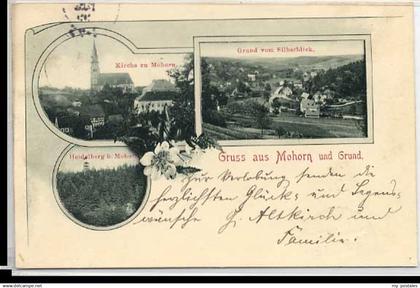 Kirche zu Mohorn.
Grund vom Silberblick.
Heidelberg b. Mohorn
Gruss aus Mohorn und Grund.
Zur Verlobung senden die
herzlichsten Glücks- und Segens-
wünsche G. Altkirch und
Familie.
my-postales